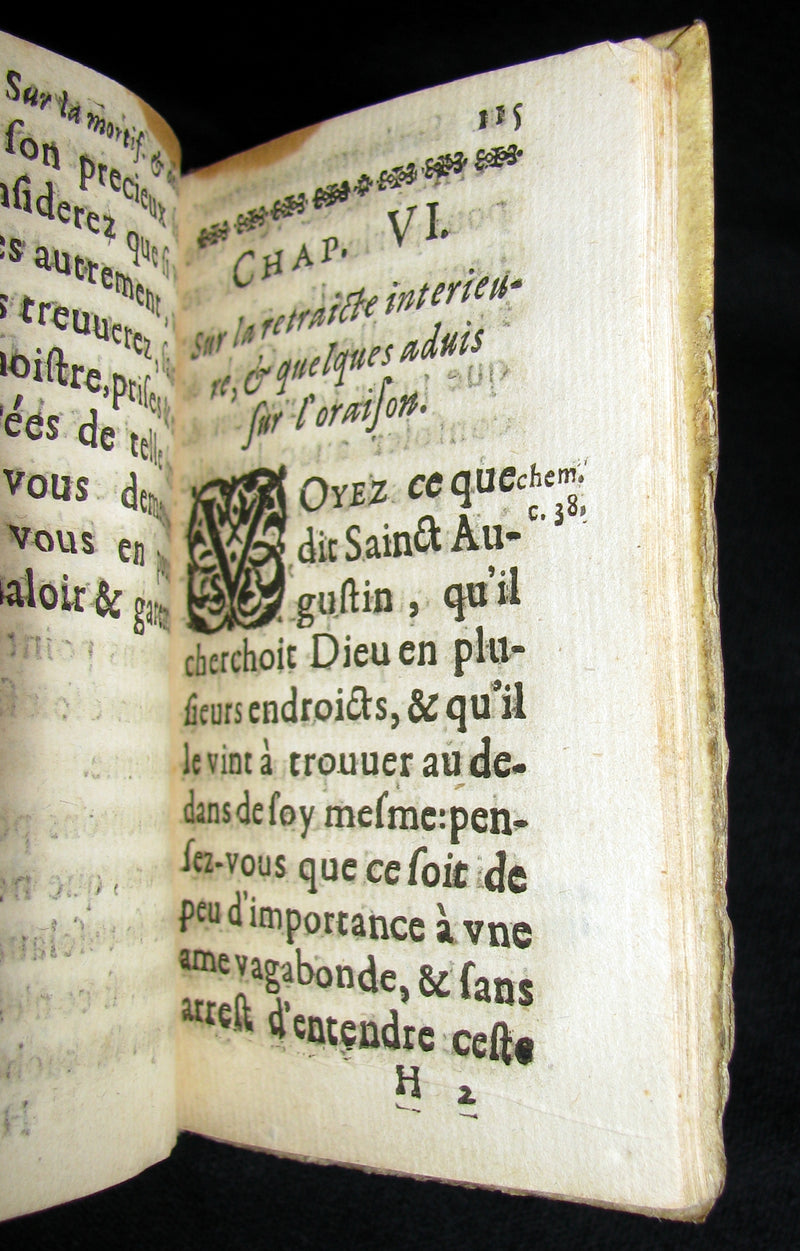 Sur la mortif. &
son precieux
nsiderez que
es autrement,
s treuuerez,
noistre, prises
ées de telle
vous
vous en
aloir &
115
CHAP. VI.
Sur la retraicte interieu-
re, & quelques aduis
sur l'oraison.
VOYEZ ce que chem.
c. 38.
dit Sainct Au-
gustin, qu'il
cherchoit Dieu en plu-
sieurs endroicts, & qu'il
le vint à trouuer au de-
dans de soy mesme: pen-
sez-vous que ce soit de
peu d'importance à vne
ame vagabonde, & sans
arrest d'entendre ceste
H 2